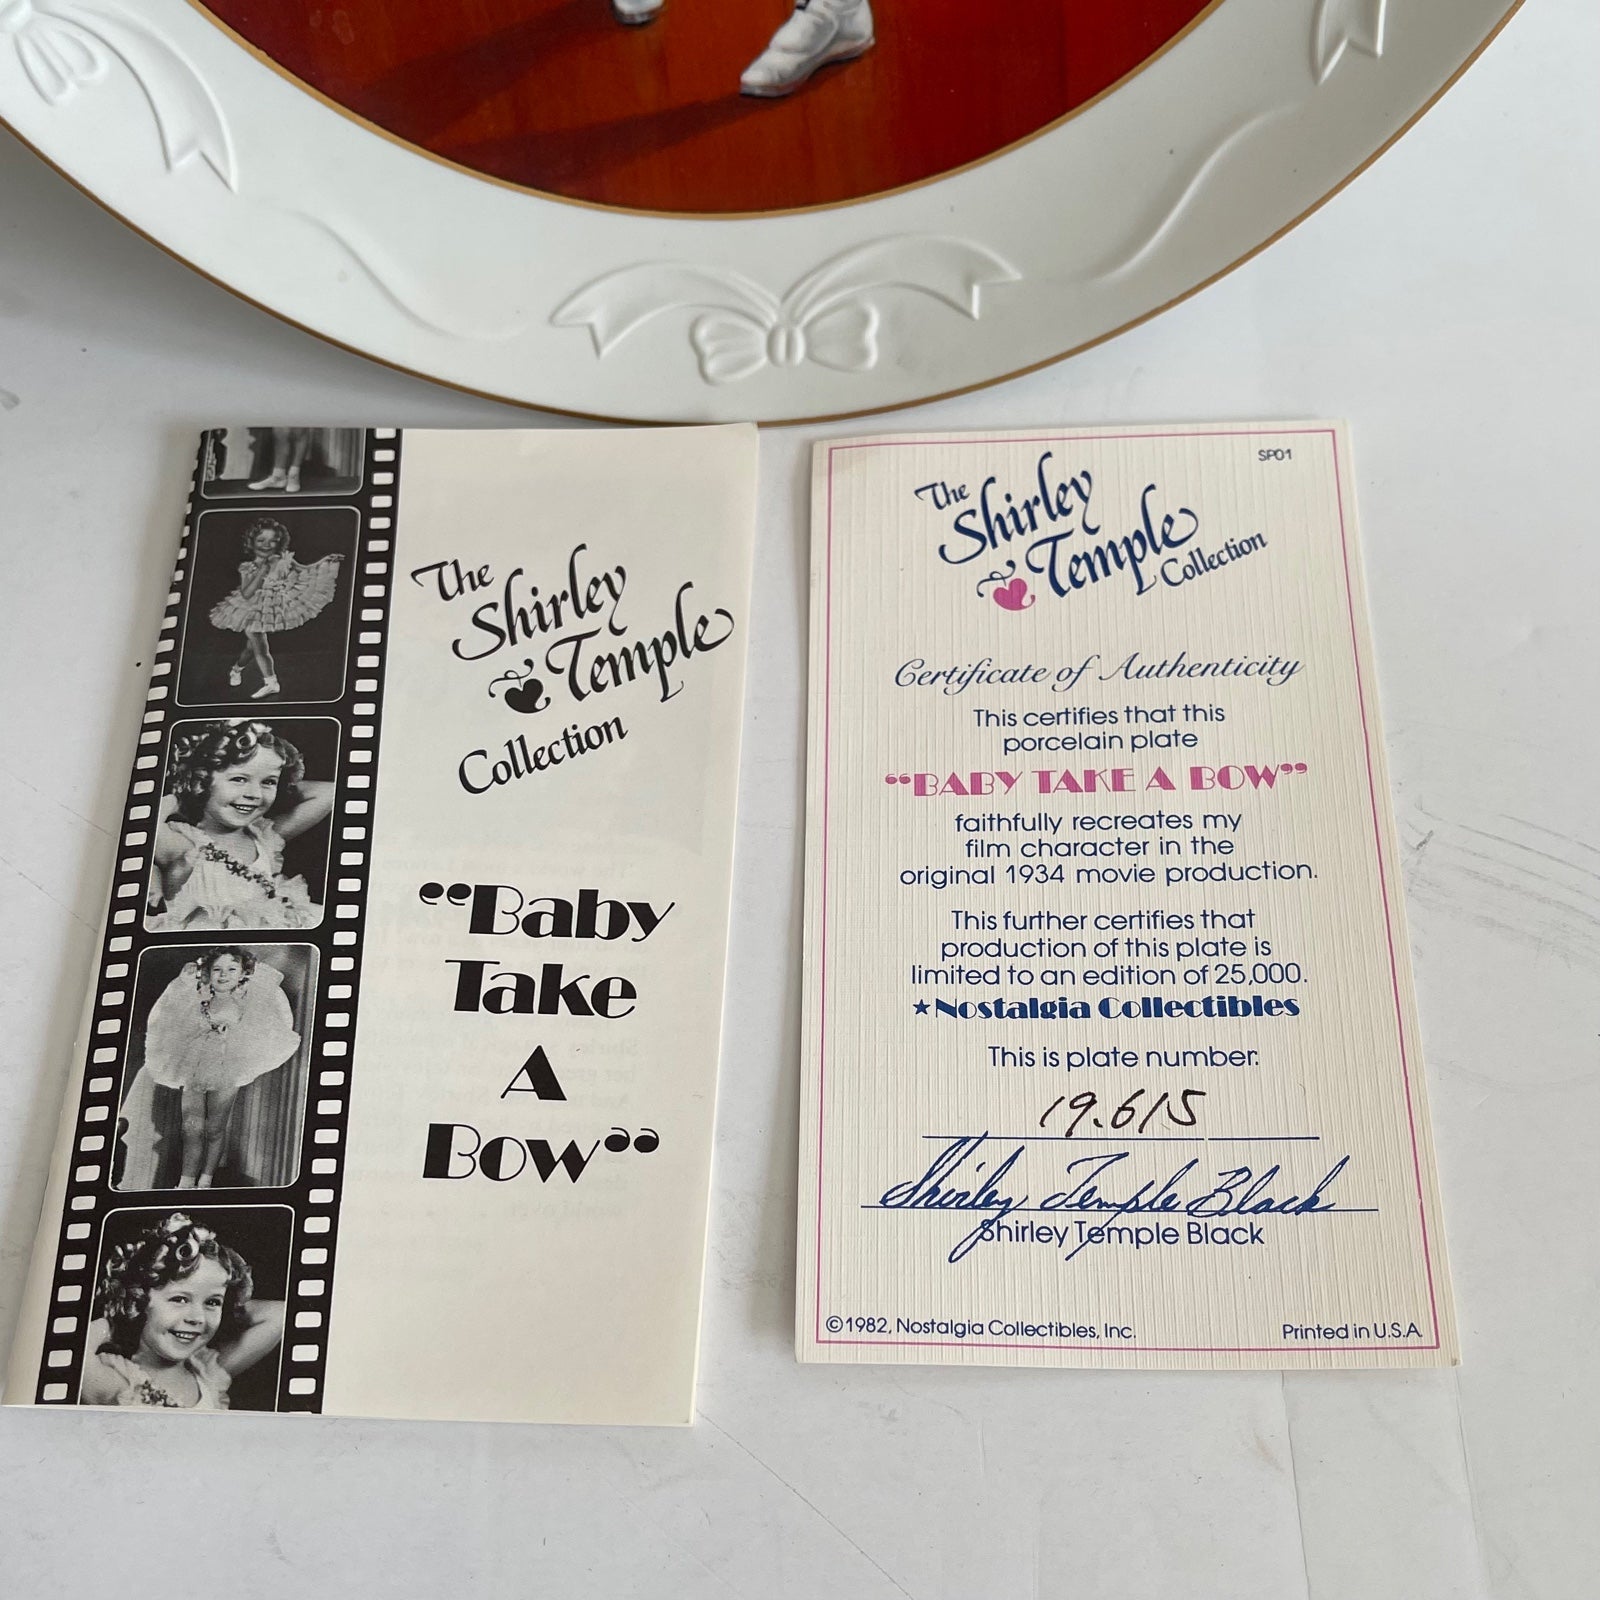 The
Shirley
Temple
Collection
"Baby
Take
A
Bow"
SP01
The
Shirley
Temple
Collection
Certificate of Authenticity
This certifies that this
porcelain plate
"BABY TAKE A BOW"
faithfully recreates my
film character in the
original 1934 movie production.
This further certifies that
production of this plate is
limited to an edition of 25,000.
★Nostalgia Collectibles
This is plate number:
19.615
Shirley Temple Black
Shirley Temple Black
©1982, Nostalgia Collectibles, Inc.
Printed in U.S.A.